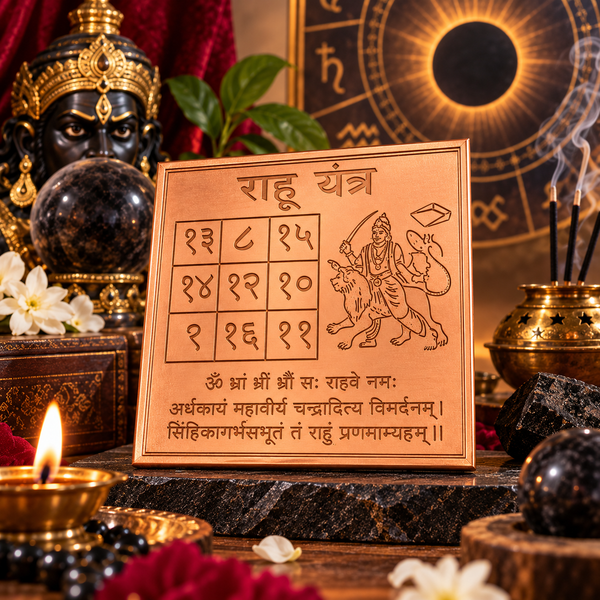 राहू यंत्र
१३ ८ १५
१४ १२ १०
९ १६ ११
ॐ भ्रां भ्रीं भ्रौं सः राहवे नमः
अर्धकायं महावीर्य चन्द्रादित्य विमर्दनम् ।
सिंहिकागर्भसभूतं तं राहुं प्रणमाम्यहम् ।।